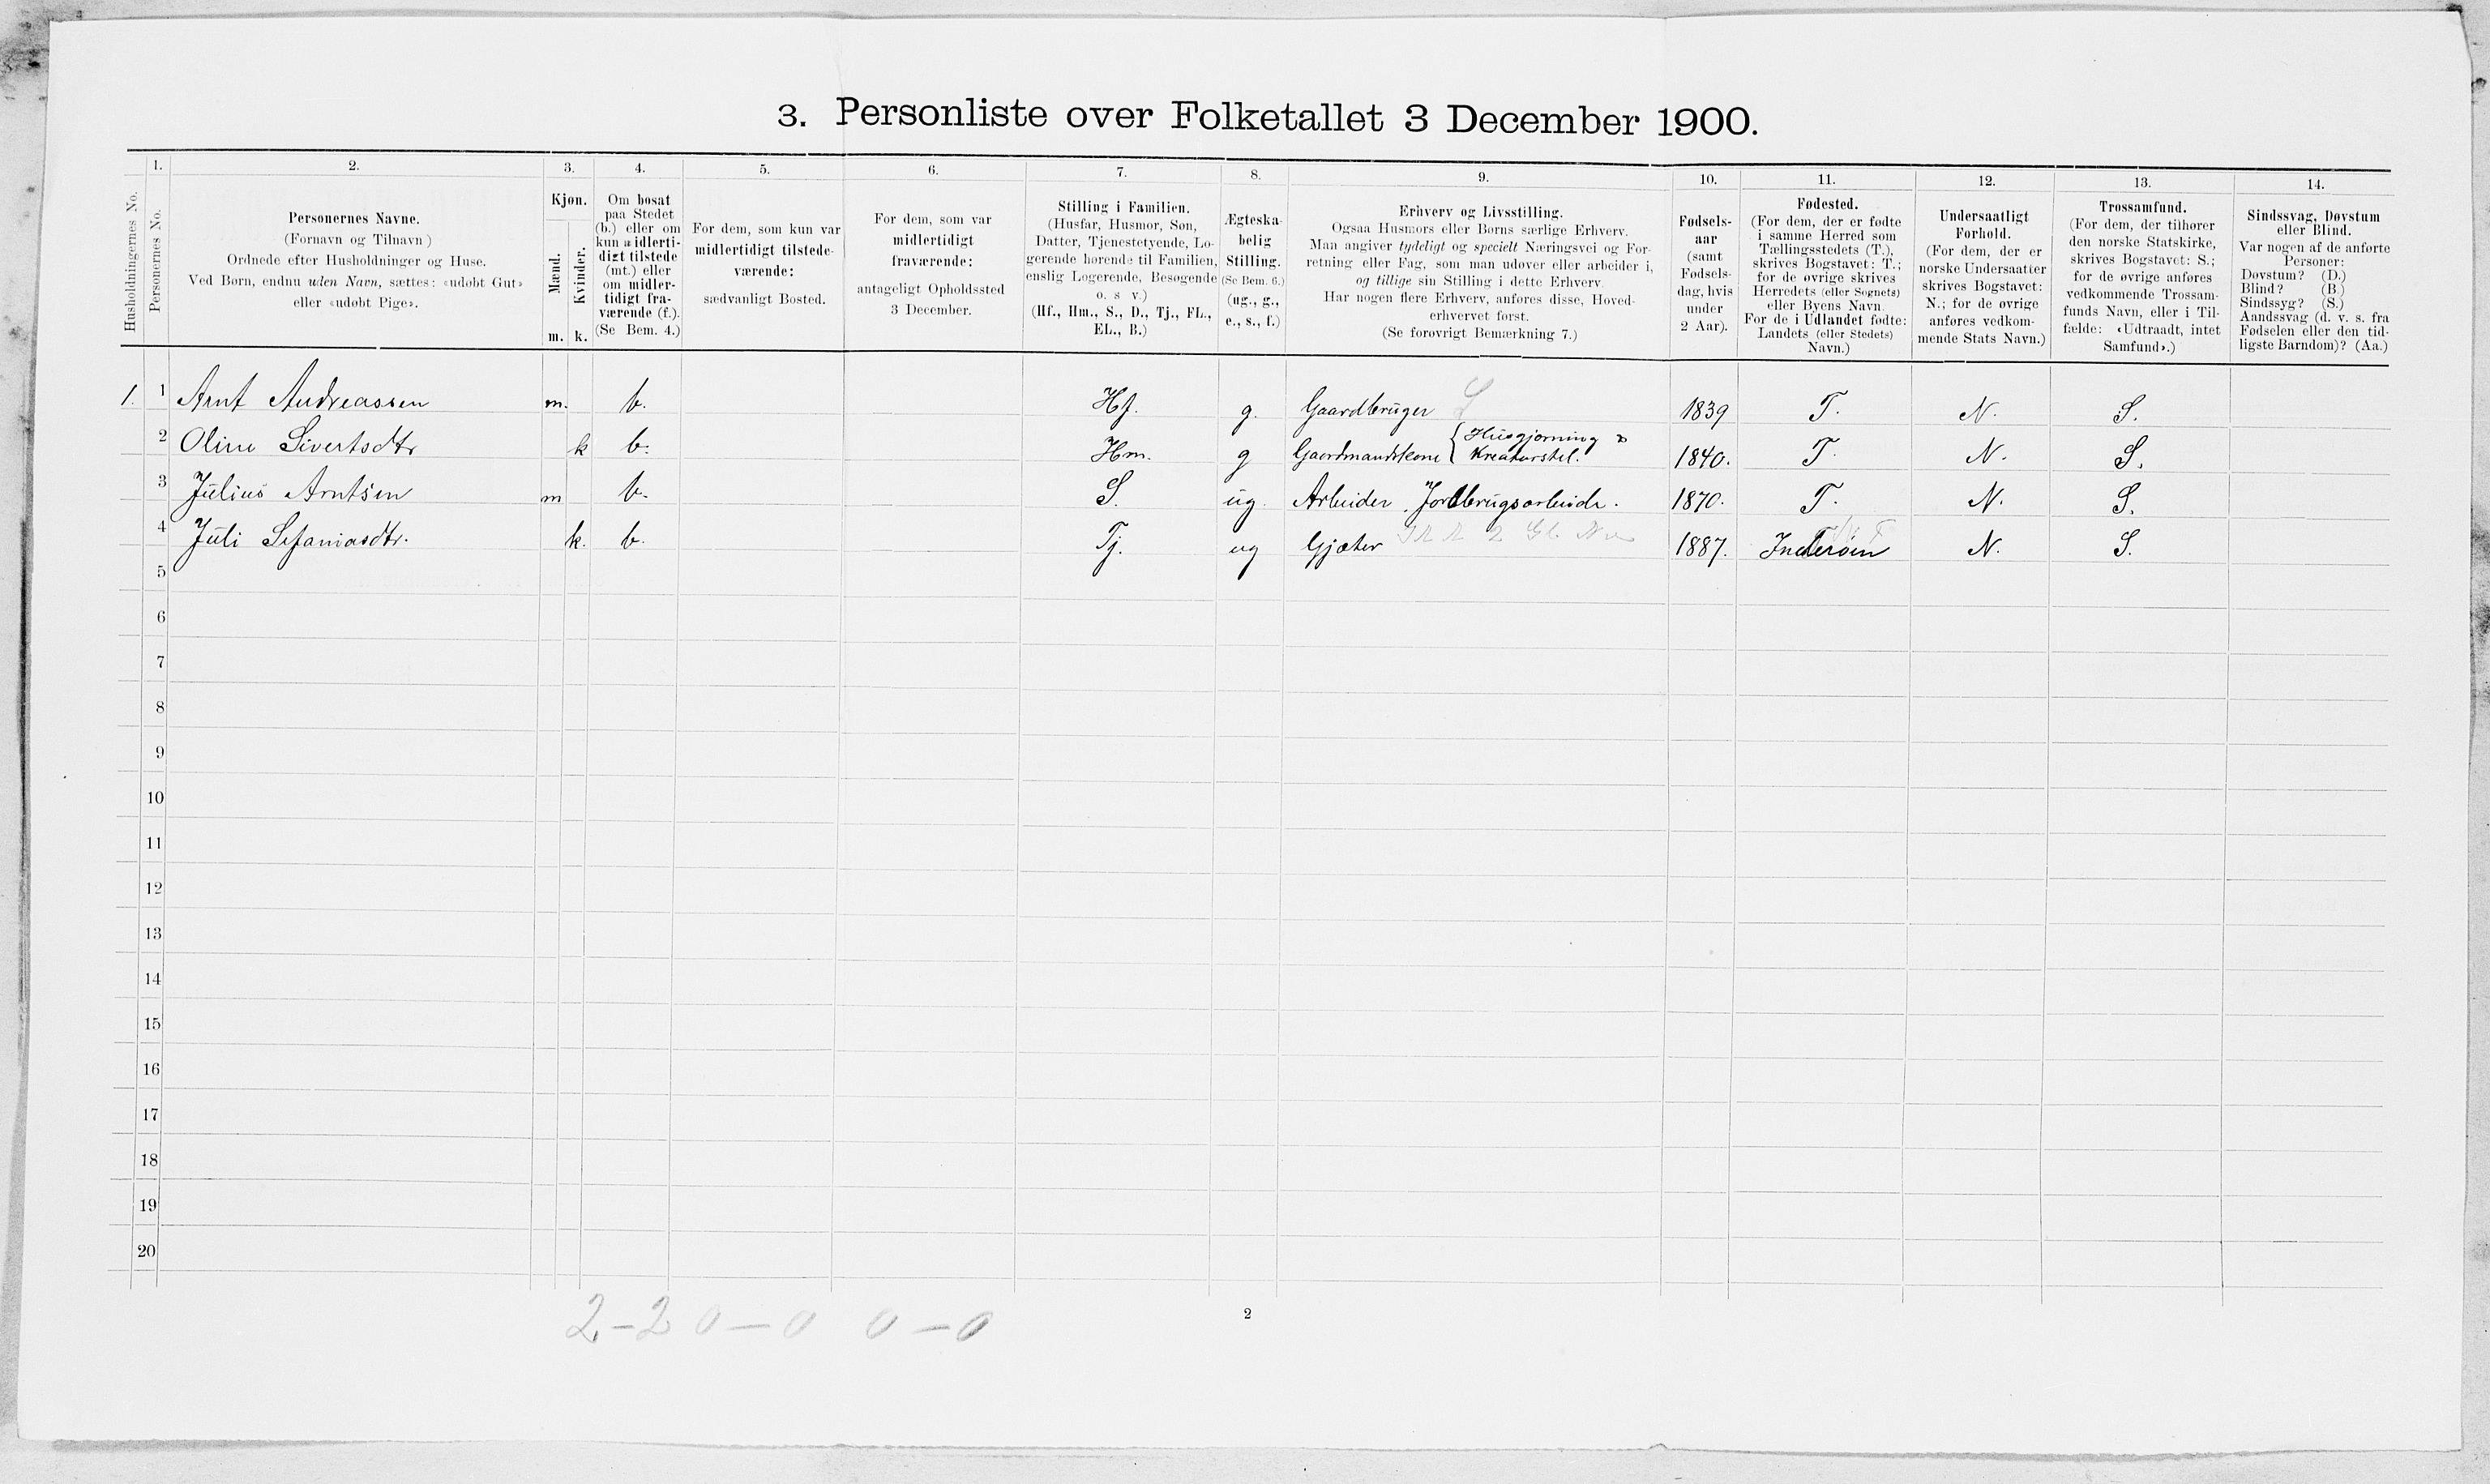 3. Personliste over Folketallet 3 December 1900.
Husholdningernes No.
1.
Personernes No.
2.
Personernes Navne.
(Fornavn og Tilnavn)
Ordnede efter Husholdninger og Huse.
Ved Børn, endnu uden Navn, sættes: «udøbt Gut»
eller «udøbt Pige».
3.
Kjøn.
Mænd.
Kvinder.
m. k.
4.
Om bosat
paa Stedet
(b.) eller om
kun midlerti-
digt tilstede
(mt.) eller
om midler-
tidigt fra-
værende (f.).
(Se Bem. 4.)
5.
For dem, som kun var
midlertidigt tilstede-
værende:
sædvanligt Bosted.
6.
For dem, som var
midlertidigt
fraværende:
antageligt Opholdssted
3 December.
7.
Stilling i Familien.
(Husfar, Husmor, Søn,
Datter, Tjenestetyende, Lo-
gerende hørende til Familien,
enslig Logerende, Besøgende
o. s v.)
(Hf., Hm., S., D., Tj., FL.,
EL., B.)
8.
Ægteska-
belig
Stilling.
(Se Bem. 6.)
(ug., g.,
e., s., f.)
9.
Erhverv og Livsstilling.
Ogsaa Husmors eller Børns særlige Erhverv.
Man angiver tydeligt og specielt Næringsvei og For-
retning eller Fag, som man udøver eller arbeider i,
og tillige sin Stilling i dette Erhverv.
Har nogen flere Erhverv, anføres disse, Hoved-
erhvervet først.
(Se forøvrigt Bemærkning 7.)
10.
Fødsels-
aar
(samt
Fødsels-
dag, hvis
under
2 Aar).
11.
Fødested.
(For dem, der er fødte
i samme Herred som
Tællingsstedets (T.),
skrives Bogstavet: T.;
for de øvrige skrives
Herredets (eller Sognets)
eller Byens Navn.
For de i Udlandet fødte:
Landets (eller Stedets)
Navn.)
12.
Undersaatligt
Forhold.
(For dem, der er
norske Undersaatter
skrives Bogstavet:
N.; for de øvrige
anføres vedkom-
mende Stats Navn.)
13.
Trossamfund.
(For dem, der tilhører
den norske Statskirke,
skrives Bogstavet: S.;
for de øvrige anføres
vedkommende Trossam-
funds Navn, eller i Til-
fælde: «Udtraadt, intet
Samfund».)
14.
Sindssvag, Døvstum
eller Blind.
Var nogen af de anførte
Personer:
Døvstum? (D.)
Blind? (B.)
Sindssyg? (S.)
Aandssvag (d. v. s. fra
Fødselen eller den tid-
ligste Barndom)? (Aa.)
1. 1 Arnt Andreassen m. b. Hf. g. Gaardbruger 1839 T. N. S.
2 Oline Sivertsdtr k b. Hm. g Gaardmandskone { Husgjærning & Kreaturstel. 1840. T. N. S.
3 Julius Arntsen m b. S. ug. Arbeider, Jordbrugsarbeide. 1870. T. N. S.
4 Juli Sefaniasdtr. k. b. Tj. ug Gjæter 1887. Inderøen N. S.
5
6
7
8
9
10
11
12
13
14
15
16
17
18
19
20
2-2 0-0 0-0
2